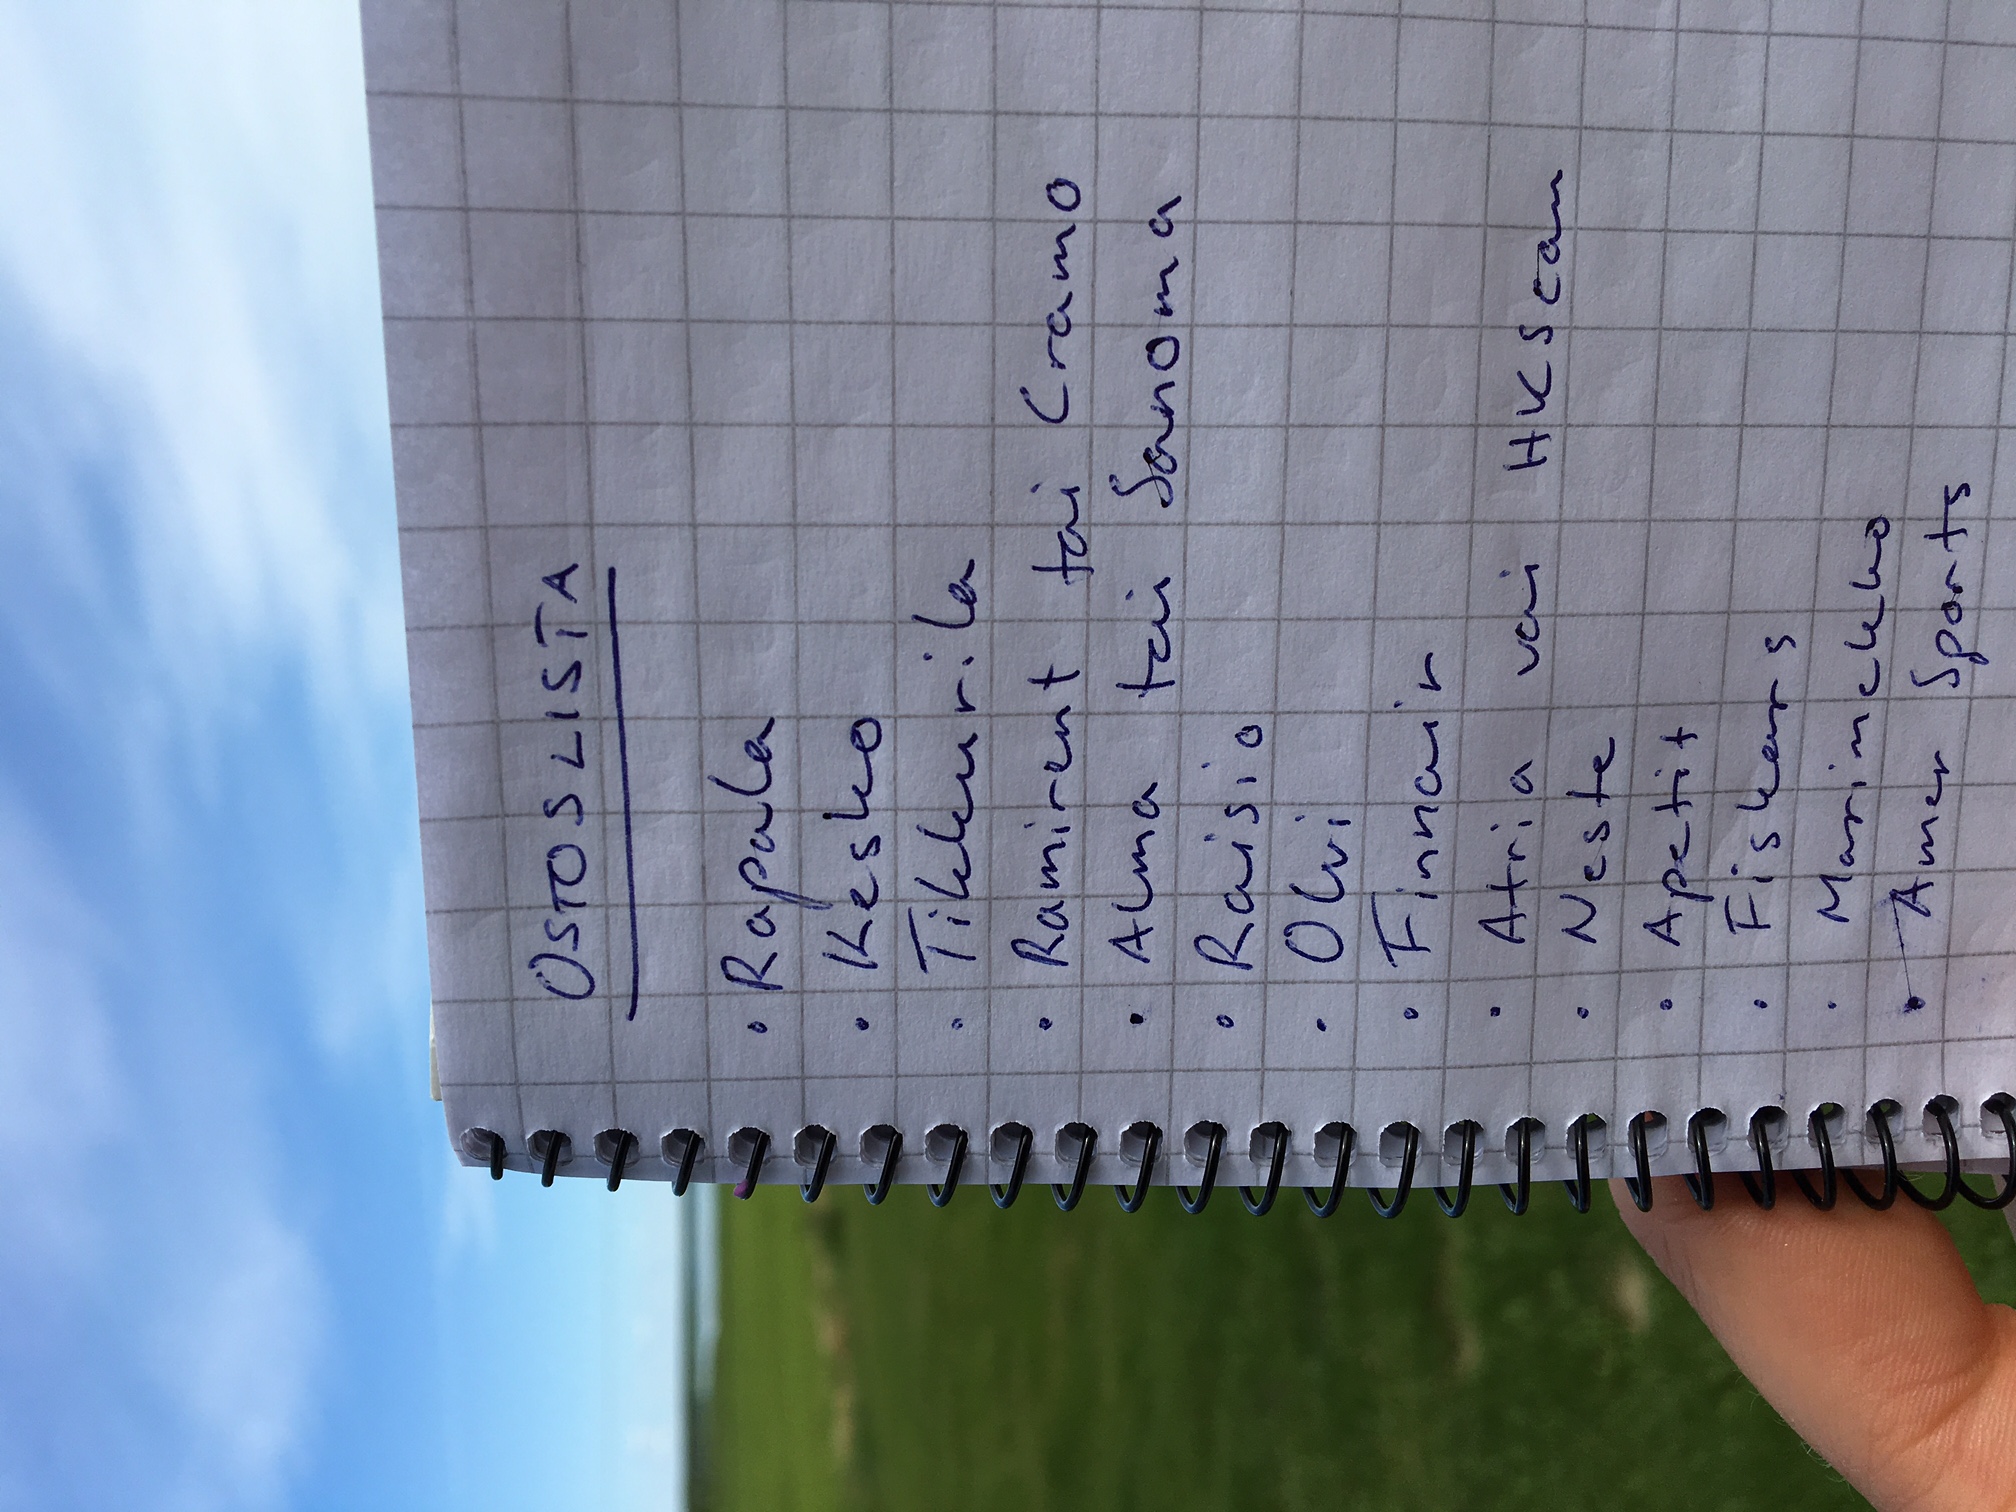 OSTOSLISTA
• Rapala
• Kesko
• Tikkurila
• Ramirent tai Cramo
• Alma tai Sanoma
• Raisio
• Olvi
• Finnair
• Atria vai HKScan
• Neste
• Apetit
• Fiskars
• Marimekko
• Amer Sports